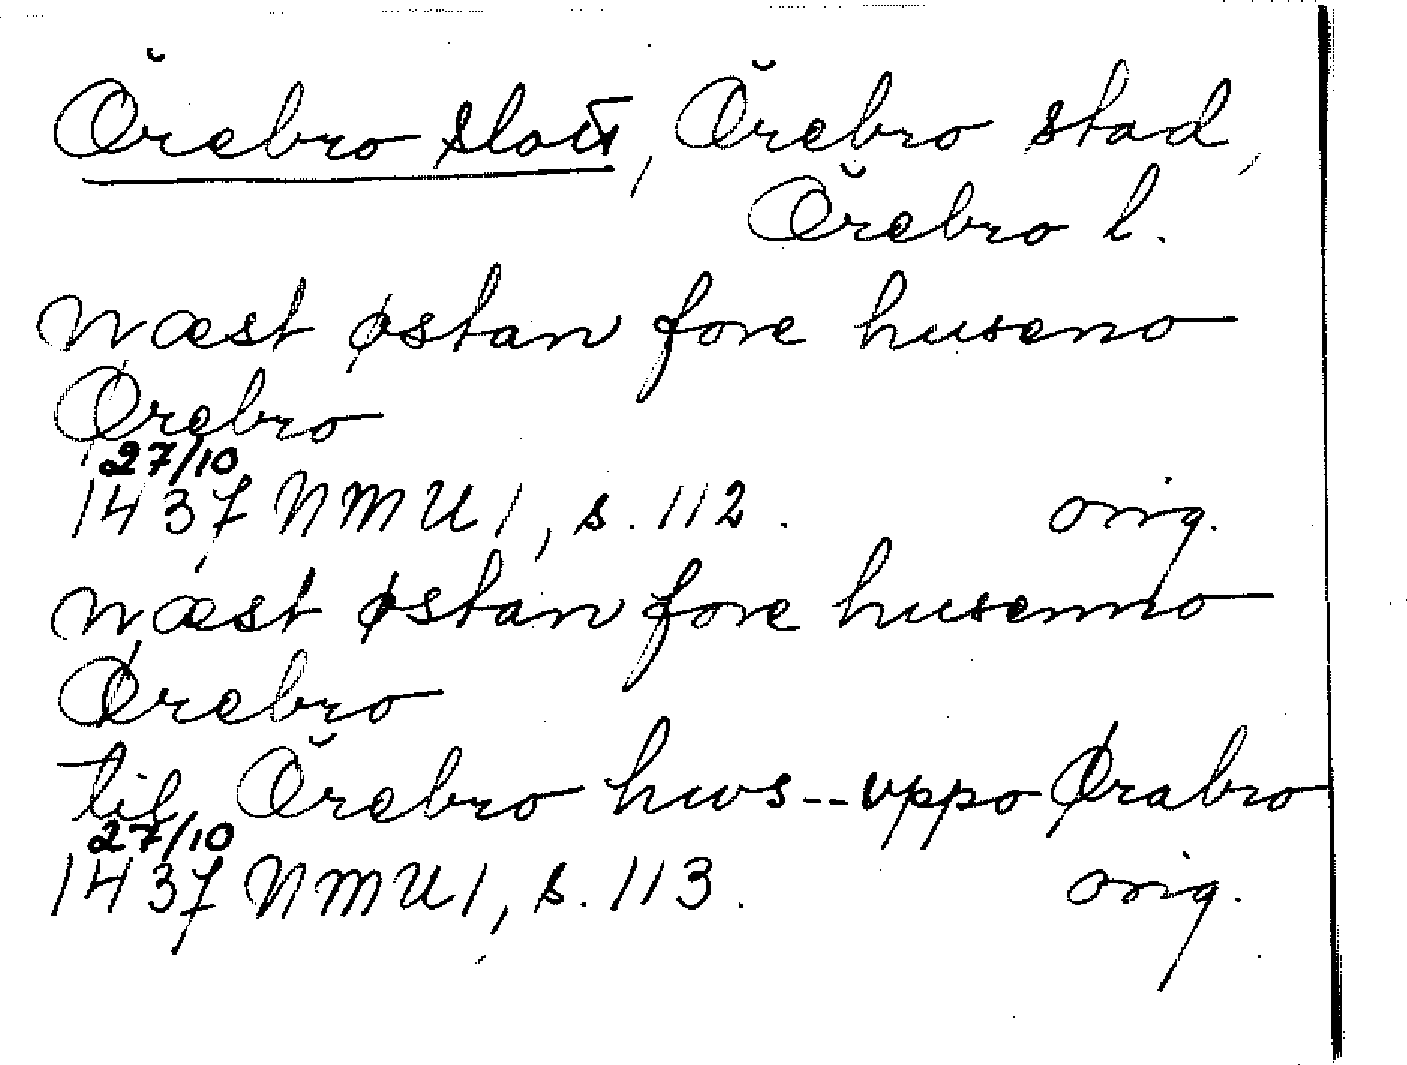 Örebro slott, Örebro stad,
Örebro l.
næst østan fore huseno
Ørebro
27/10
1437 NMU 1, s. 112. orig.
næst østan fore husenno
Ørebro
til Örebro hws -- vppo Ørabro
27/10
1437 NMU 1, s. 113. orig.